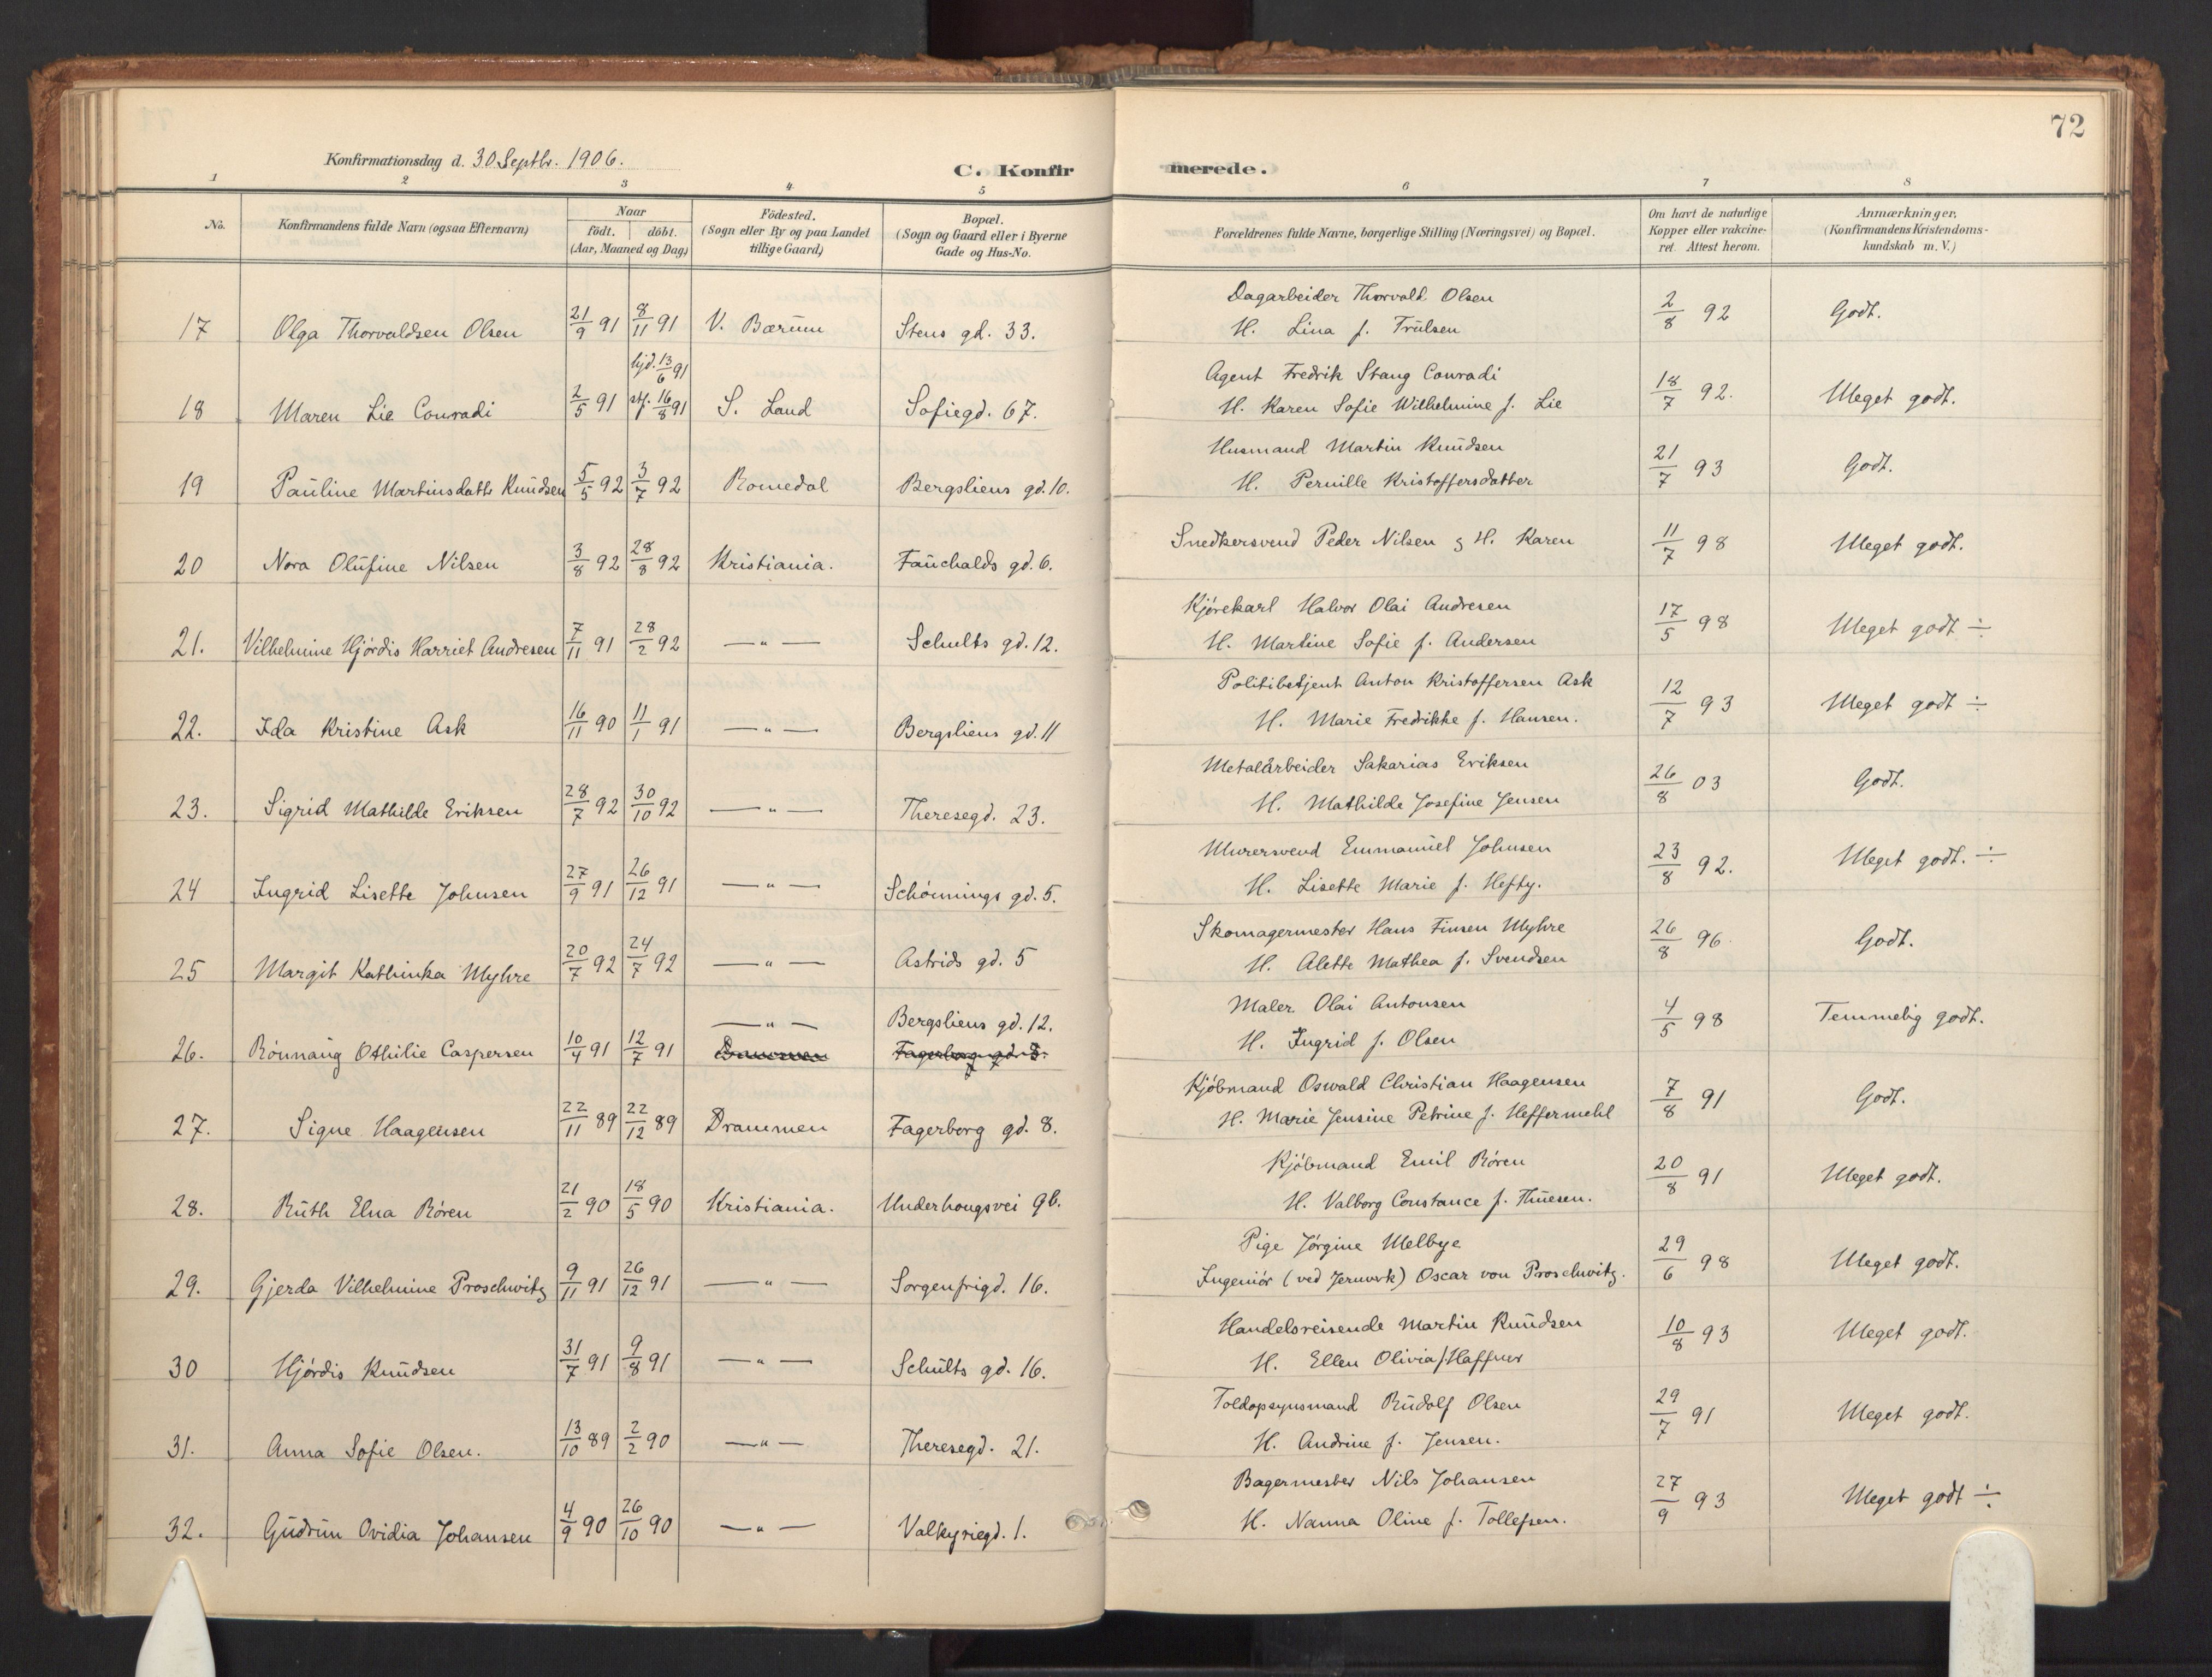 72
Konfirmationsdag d. 30 Septbr. 1906.
C. Konfirmerede.
1 2 3 4 5 6 7 8
No.
Konfirmandens fulde Navn (ogsaa Efternavn)
Naar
födt. döbt.
(Aar, Maaned og Dag)
Födested.
(Sogn eller By og paa Landet
tillige Gaard)
Bopæl.
(Sogn og Gaard eller i Byerne
Gade og Hus-No.
Forældrenes fulde Navne, borgerlige Stilling (Næringsvei) og Bopæl.
Om havt de naturlige
Kopper eller vakcine-
ret. Attest herom.
Anmærkninger.
(Konfirmandens Kristendoms-
kundskab m. V.)
Dagarbeider Thorvald Olsen
17 Olga Thorvaldsen Olsen 21/9 91 8/11 91 V. Bærum Stens gd. 33. H. Lina f. Trulsen 2/8 92 Godt.
hjd. 13/6 91 Agent Fredrik Stang Conradi
18 Maren Lie Conradi 2/5 91 stf. 16/8 91 S. Land Sofiegd. 67. H. Karen Sofie Wilhelmine f. Lie 18/7 92. Meget godt.
Husmand Martin Knudsen
19 Pauline Martinsdatts Knudsen 5/5 92 3/7 92 Romedal Bergsliens gd. 10. H. Pernille Kristoffersdatter 21/7 93 Godt.
20 Nora Olufine Nilsen 3/8 92 28/8 92 Kristiania. Fauchalds gd. 6. Snedkersvend Peder Nilsen og H. Karen 11/7 98 Meget godt.
Kjørekarl Halvor Olai Andresen
21. Vilhelmine Hjördis Harriet Andresen 7/11 91 28/2 92 — " — Schults gd. 12. H. Martine Sofie f. Andersen 17/5 98 Meget godt ÷
Politibetjent Anton Kristoffersen Ask
22. Ida Kristine Ask 16/11 90 11/1 91 — " — Bergsliens gd. 11 H. Marie Fredrikke f. Hansen. 12/7 93 Meget godt ÷
Metalarbeider Sakarias Eriksen
23. Sigrid Mathilde Eriksen 28/7 92 30/10 92 — " — Theresegd. 23. H. Mathilde Josefine Jensen 26/8 03 Godt.
Murersvend Emmanuel Johnsen
24 Ingrid Lisette Johnsen 27/9 91 26/12 91 — " — Schönnings gd. 5. H. Lisette Marie f. Hefty. 23/8 92. Meget godt. ÷
Skomagermester Hans Finsen Myhre
25 Margit Kathinka Myhre 20/7 92 24/7 92 — " — Astrids gd. 5 H. Alette Mathea f. Svendsen 26/8 96. Godt.
— " — Bergsliens gd. 12. Maler Olai Antonsen
26. Rönnaug Othilie Caspersen 10/4 91 12/7 91 Drammen Fagerborg gd. 8. H. Ingrid f. Olsen 4/5 98 Temmelig godt.
Kjöbmand Oswald Christian Haagensen
27. Signe Haagensen 22/11 89 22/12 89 Drammen Fagerborg gd. 8. H. Marie Jensine Petrine f. Heffermehl 7/8 91 Godt.
Kjöbmand Emil Rören
28. Ruth Elna Rören 21/2 90 18/5 90 Kristiania. Underhougsvei 9b. H. Valborg Constance f. Thuesen. 20/8 91 Meget godt.
Pige Jörgine Melbye
29. Gjerda Vilhelmine Proschwitz 9/11 91 26/12 91 — " — Sorgenfrigd. 16. Ingeniör (ved Jernverk) Oscar von Proschwitz. 29/6 98 Meget godt.
Handelsreisende Martin Knudsen
30 Hjördis Knudsen 31/7 91 9/8 91 — " — Schults gd. 16. H. Ellen Olivia f. Haffner 10/8 93 Meget godt.
Toldopsynsmand Rudolf Olsen
31. Anna Sofie Olsen. 13/10 89 2/2 90 — " — Theresegd. 21. H. Andrine f. Jensen. 29/7 91 Meget godt.
Bagermester Nils Johansen
32. Gudrun Ovidia Johansen 4/9 90 26/10 90 — " — Valkyriegd. 1. H. Nanna Oline f. Tollefsen. 27/9 93 Meget godt ÷